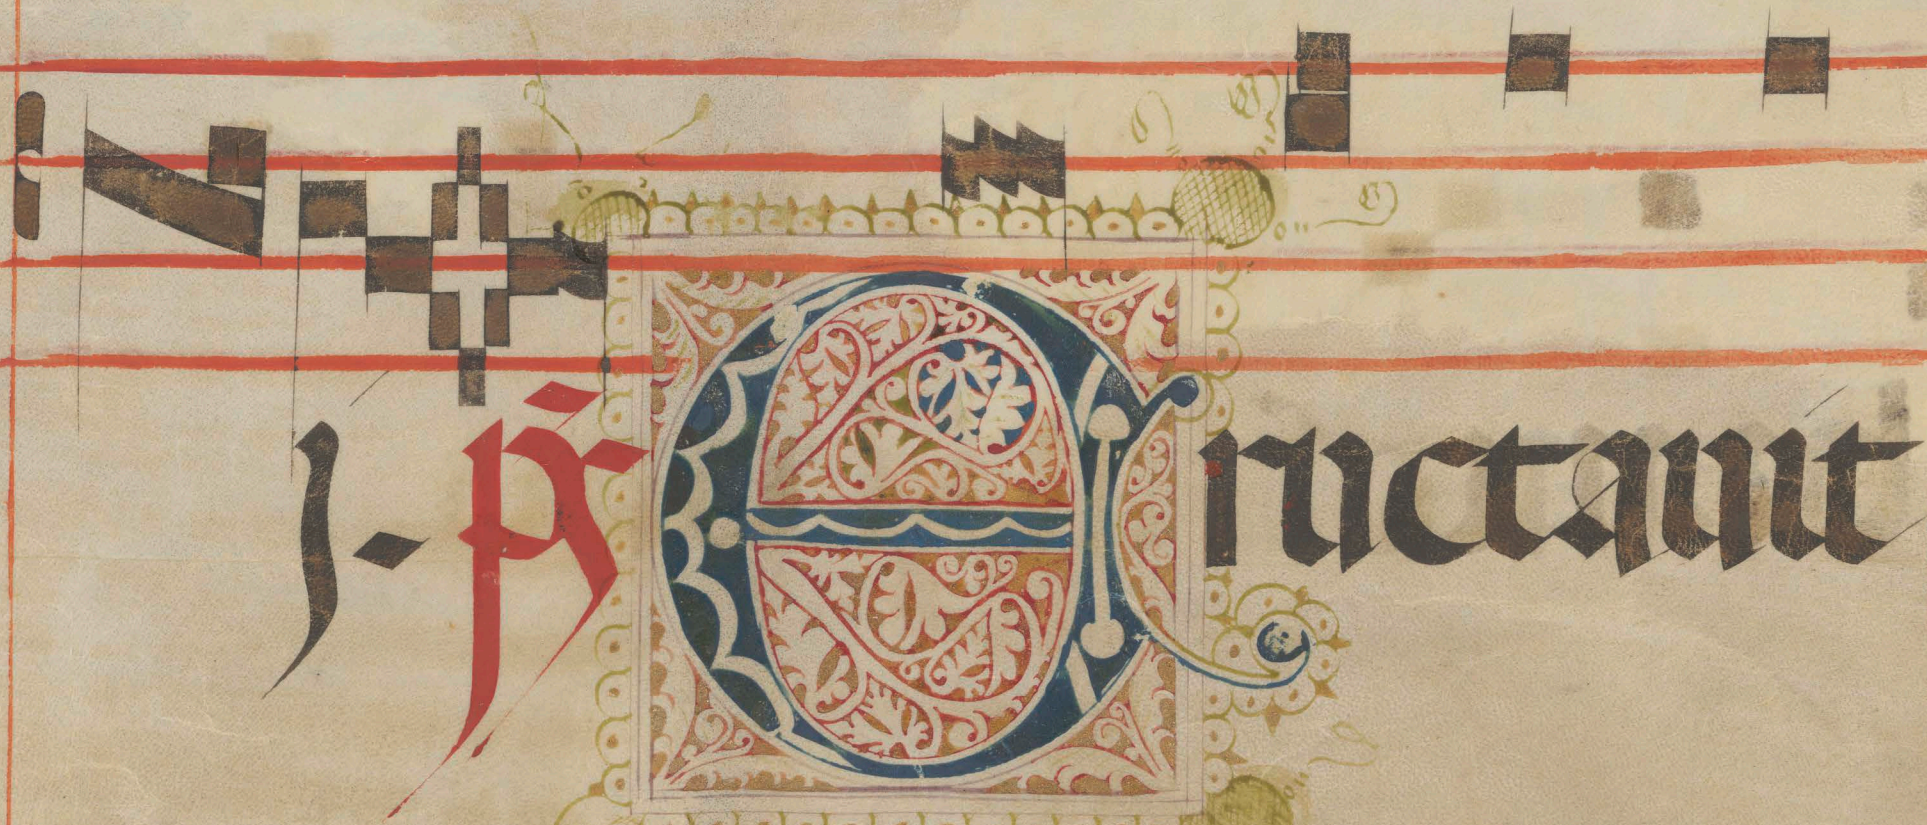 j. ps Eructauit